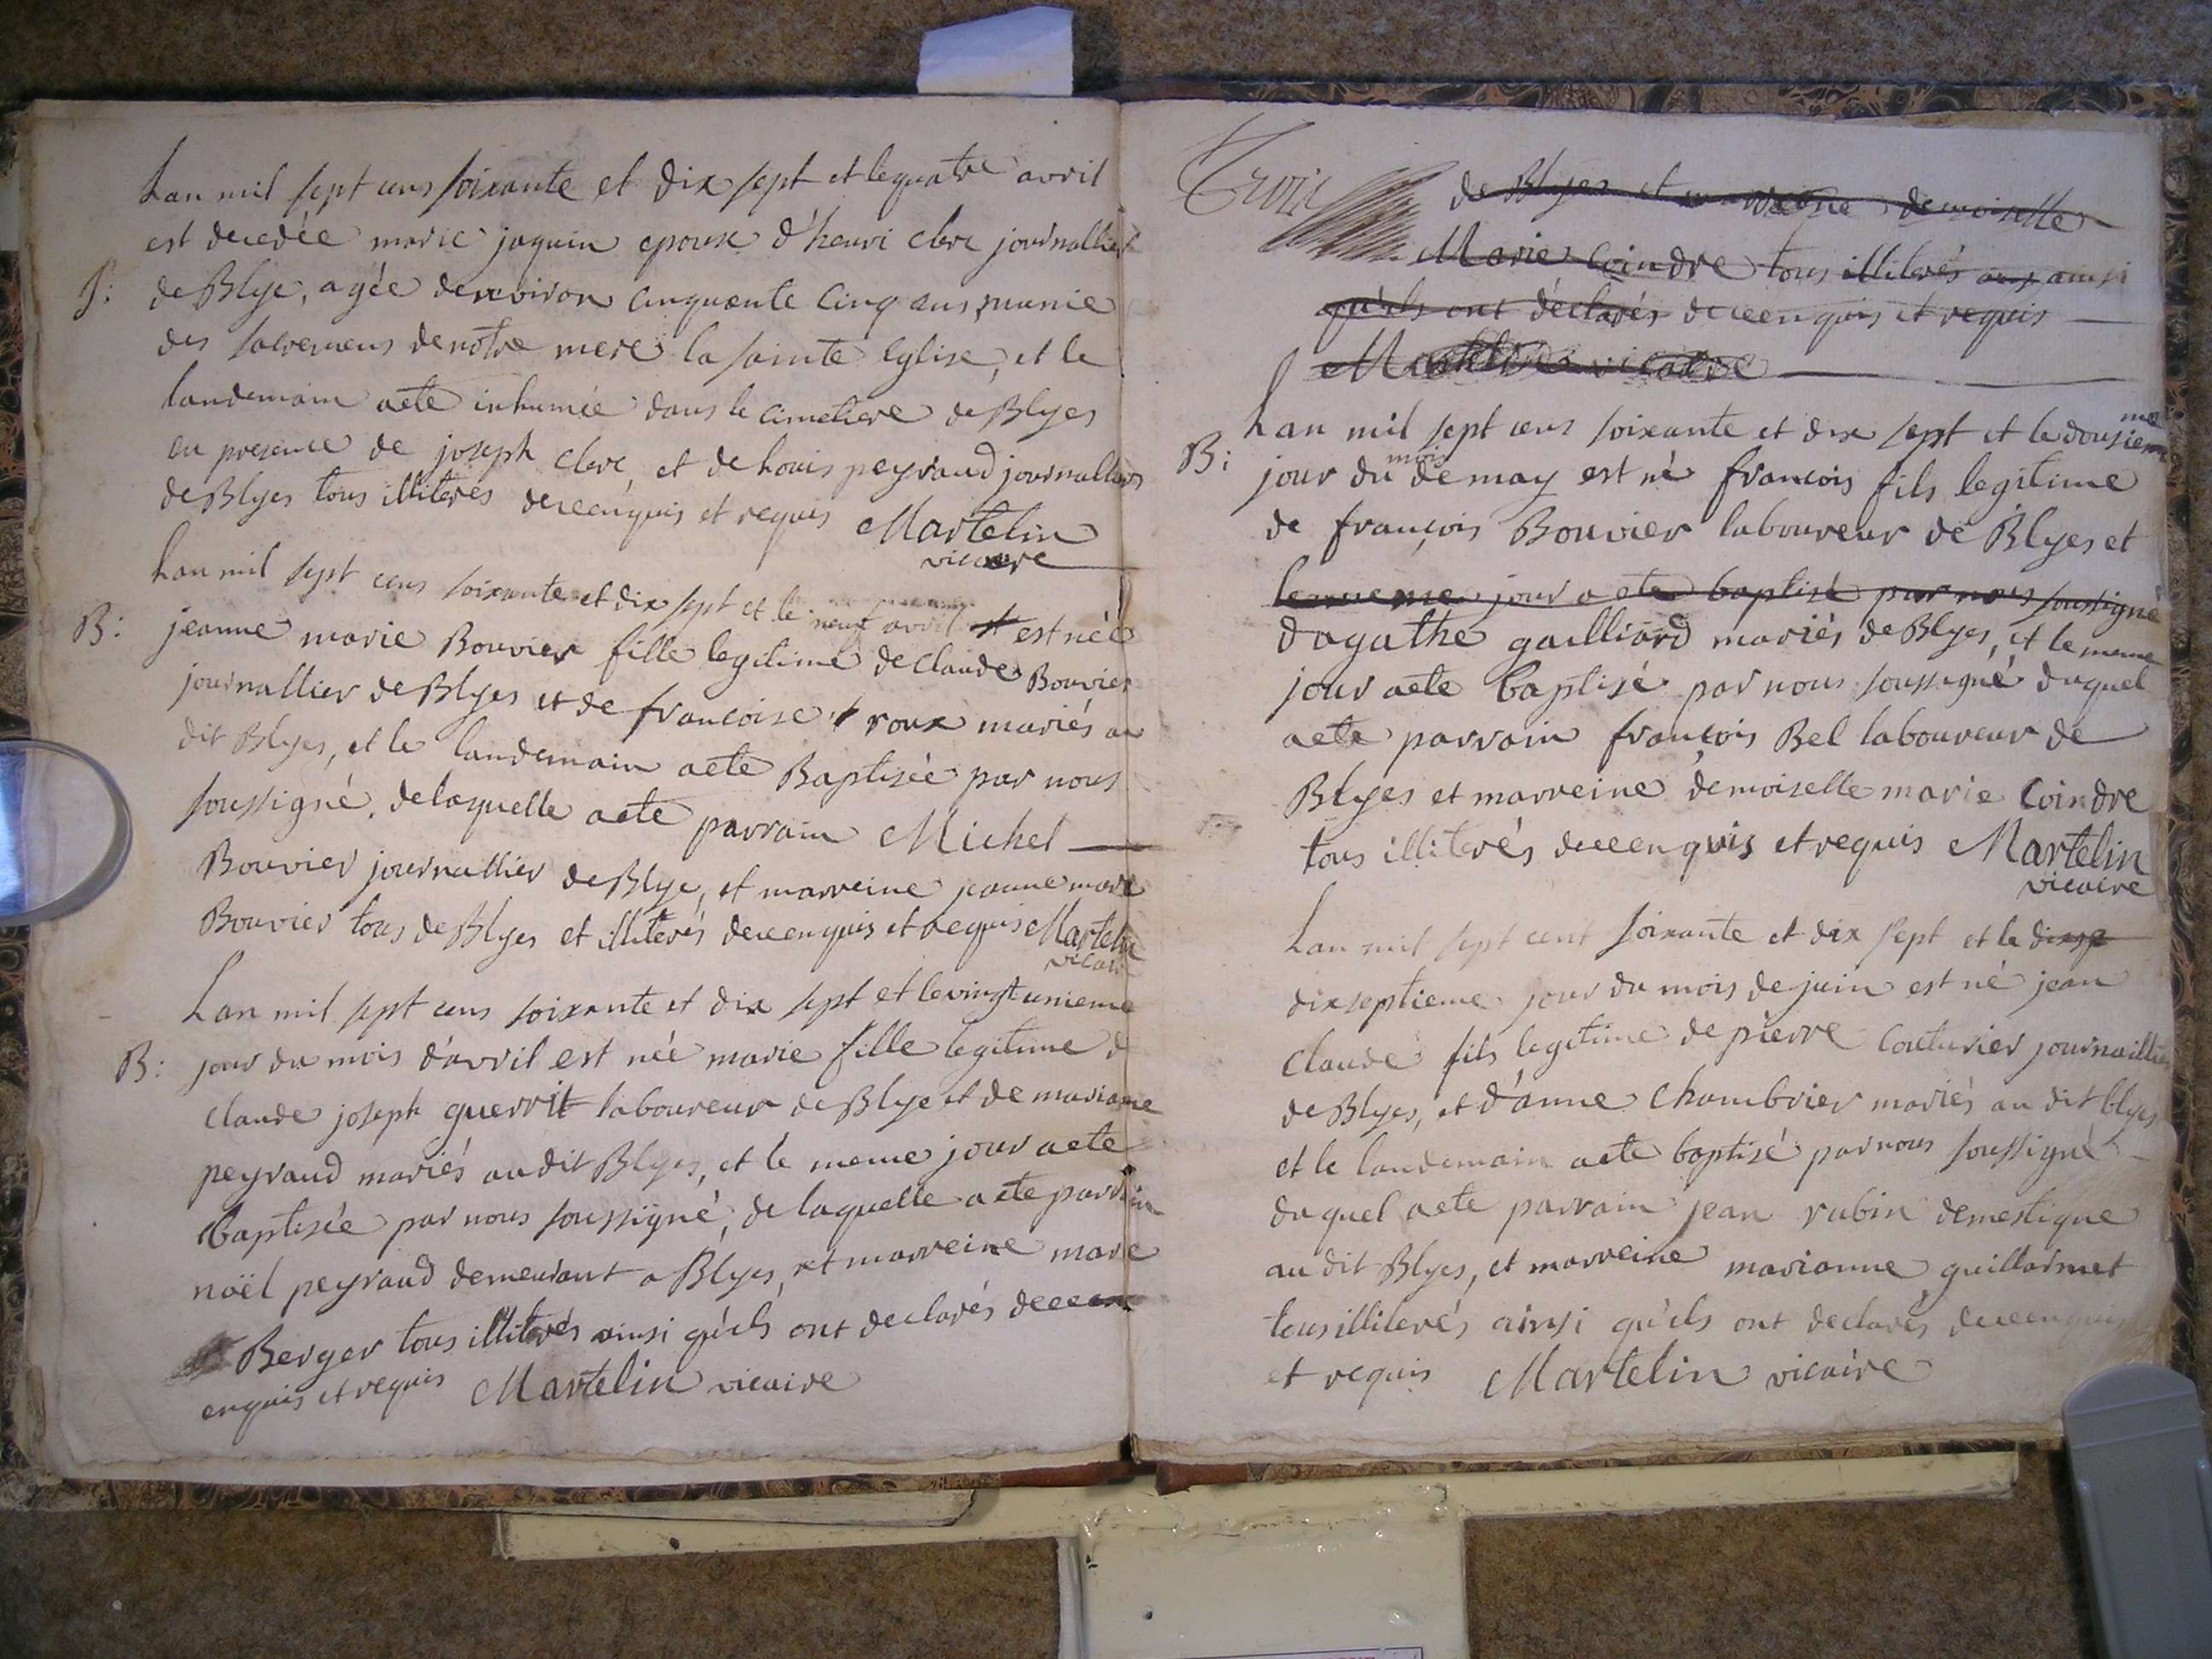 Lan mil sept cens soixante et dix sept et le quatre avril
est decedée marie jaquin epouse d'henri clerc journallier
S: de Blye, agée denviron cinquante cinq ans, munie
des sacremens de notre mere la sainte Eglise, et le
landemain aeté inhumée dans le cimetiere de Blyes
en presence de joseph clerc, et de Louis peyraud journalliers
de Blyes tous illiterés de ce enquis et requis Martelin
vicaire
Lan mil sept cens soixante et dix sept et le neuf avril est née
B: jeanne marie Bouvier fille legitime de claude Bouvier
journallier de Blyes et de francoise roux mariés au
dit Blyes, et le landemain aeté Baptisée par nous
soussigné. de laquelle aeté parrain Michel
Bouvier journallier de Blye, et marreine jeanne marie
Bouvier tous de Blyes et illiterés de ce enquis et requis Martelin
vicaire
Lan mil sept cens soixante et dix sept et le vingt unieme
B: jour du mois d'avril est née marie fille legitime d
claude joseph guerrit laboureur de Blye et de mariane
peyraud mariés au dit Blyes, et le meme jour aeté
baptisée par nous soussigné, de laquelle aeté parrain
noël peyraud demeurant a Blyes, et marreine marie
Berger tous illiterés ainsi qu'ils ont declarés de ce
enquis et requis Martelin vicaire
Trois
de Blyes et marreine demoiselle
Marie Coindre tous illiterés ainsi
qu'ils ont déclarés de ce enquis et requis
Martelin vicaire
Lan mil sept cens soixante et dix sept et le dousieme
B: jour du mois de may est né françois fils legitime
de françois Bouvier laboureur de Blyes et
le meme jour a ete baptisé par nous soussigné
d'agathe gailliard mariés de Blyes, et le meme
jour aeté baptisé par nous soussigné duquel
aeté parrain françois Bel laboureur de
Blyes et marreine demoiselle marie Coindre
tous illiterés de ce enquis et requis Martelin
vicaire
Lan mil sept cent soixante et dix sept et le
dixseptieme jour du mois de juin est né jean
claude fils legitime de pierre Couturier journaillier
de Blyes, et d'anne Chambrier mariés au dit blyes
et le landemain aeté baptisé par nous soussigné
du quel aeté parrain jean rubin demestique
au dit Blyes, et marreine marianne guillarmet
tous illiterés ainsi qu'ils ont declarés de ce enquis
et requis Martelin vicaire